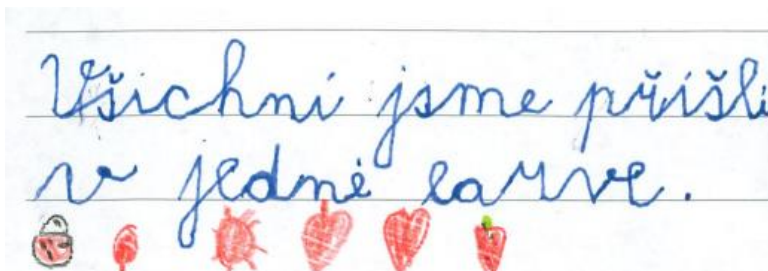 Všichni jsme přišli
v jedné barvě.